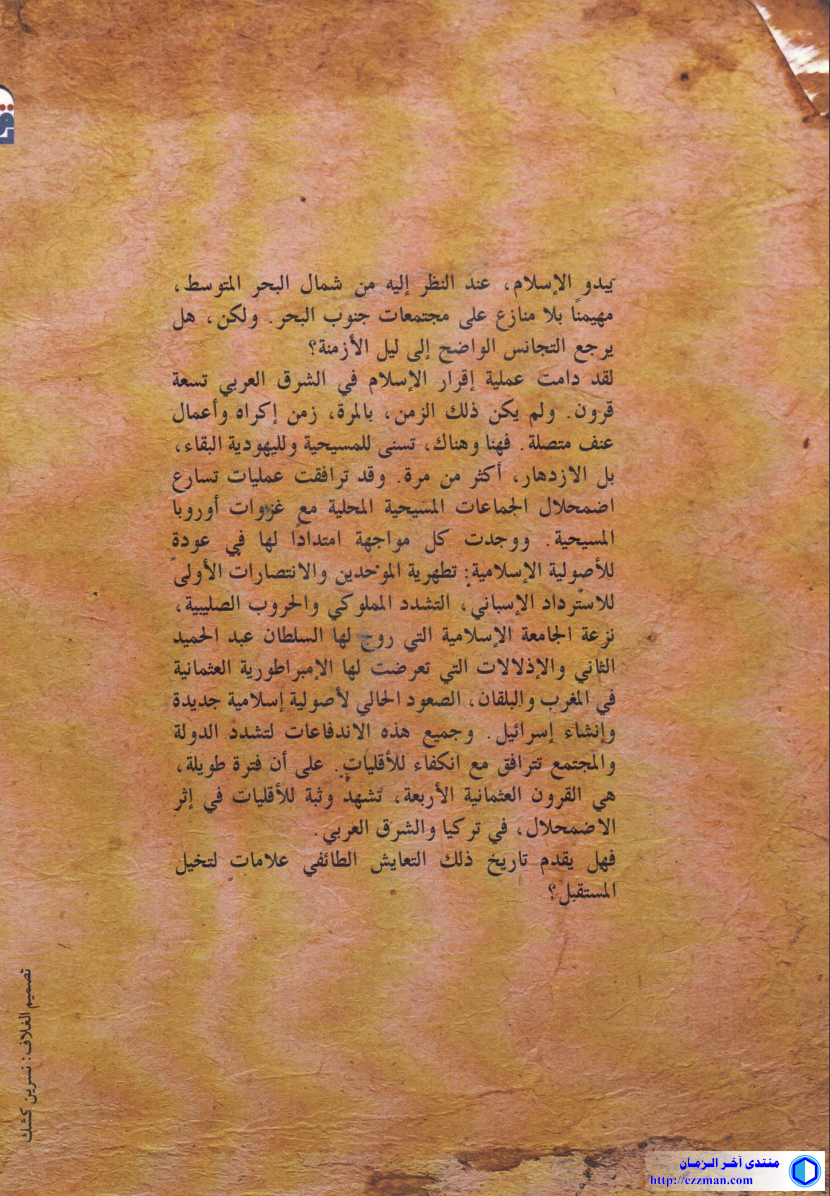 يبدو الإسلام، عند النظر إليه من شمال البحر المتوسط،
مهيمنًا بلا منازع على مجتمعات جنوب البحر. ولكن، هل
يرجع التجانس الواضح إلى ليل الأزمنة؟
لقد دامت عملية إقرار الإسلام في الشرق العربي تسعة
قرون. ولم يكن ذلك الزمن، بالمرة، زمن إكراه وأعمال
عنف متصلة. فهنا وهناك، تسنى للمسيحية ولليهودية البقاء،
بل الازدهار، أكثر من مرة. وقد ترافقت عمليات تسارع
اضمحلال الجماعات المسيحية المحلية مع غزوات أوروبا
المسيحية. ووجدت كل مواجهة امتدادًا لها في عودةٍ
للأصولية الإسلامية: تطهرية الموحدين والانتصارات الأولى
للاسترداد الإسباني، التشدد المملوكي والحروب الصليبية،
نزعة الجامعة الإسلامية التي روج لها السلطان عبد الحميد
الثاني والإذلالات التي تعرضت لها الإمبراطورية العثمانية
في المغرب والبلقان، الصعود الحالي لأصولية إسلامية جديدة
وإنشاء إسرائيل. وجميع هذه الاندفاعات لتشدد الدولة
والمجتمع تترافق مع انكفاء للأقليات. على أن فترة طويلة،
هي القرون العثمانية الأربعة، تشهدُ وثبة للأقليات في إثر
الاضمحلال، في تركيا والشرق العربي.
فهل يقدم تاريخ ذلك التعايش الطائفي علاماتٍ لتخيل
المستقبل؟
تصميم الغلاف: نسرين كشك
منتدى آخر الزمان
http://ezzman.com